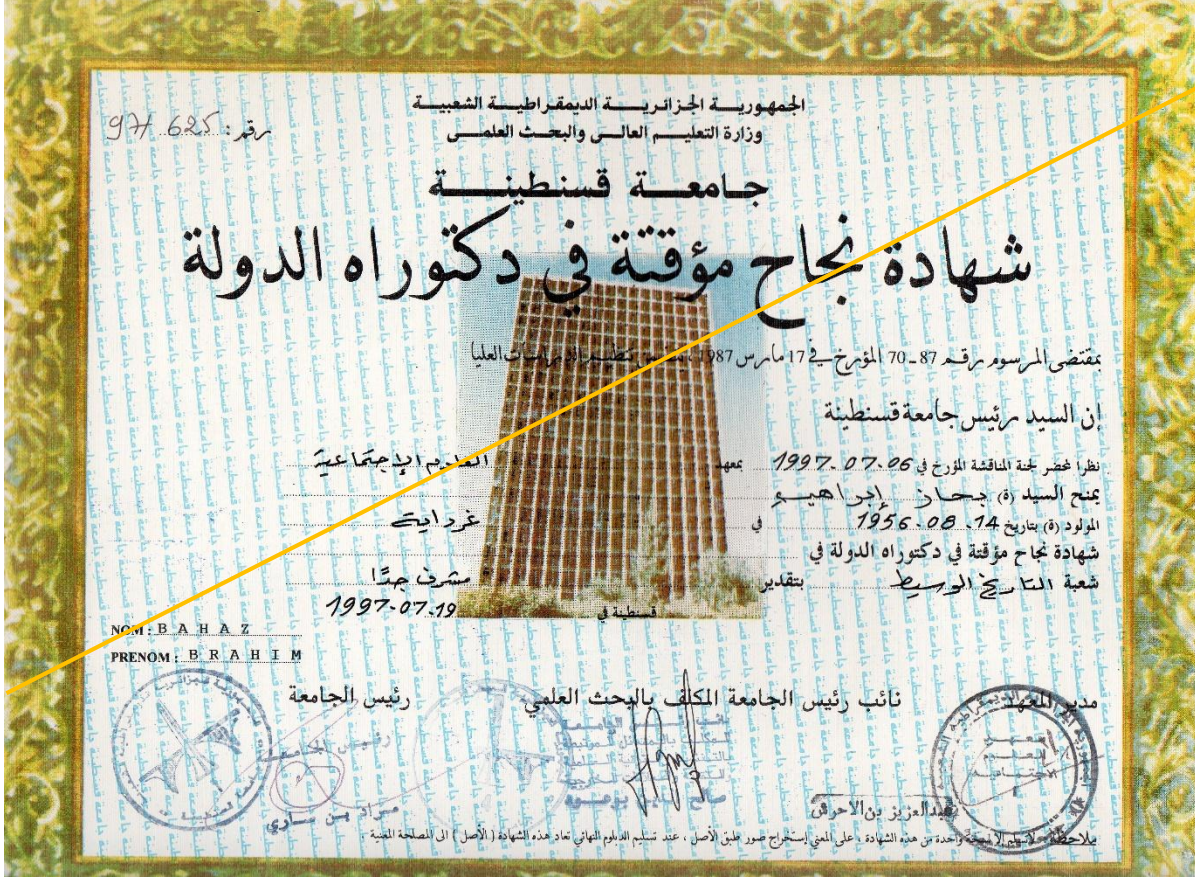 الجمهورية الجزائرية الديمقراطية الشعبية
وزارة التعليم العالي والبحث العلمي
رقم : 625 /97
جامعة قسنطينة
شهادة نجاح مؤقتة في دكتوراه الدولة
بمقتضى المرسوم رقم 87 - 70 المؤرخ في 17 مارس 1987 يتضمن تنظيم الدراسات العليا
إن السيد رئيس جامعة قسنطينة
نظرا لمحضر لجنة المناقشة المؤرخ في 06-07-1997 بمعهد العلوم الإجتماعية
يمنح السيد (ة) بحاز إبراهيم
المولود (ة) بتاريخ 14-08-1956 في غرداية
شهادة نجاح مؤقتة في دكتوراه الدولة في
شعبة التاريخ الوسيط بتقدير مشرف جدًا
قسنطينة في 19-07-1997
NOM : BAHAZ
PRENOM : BRAHIM
مدير المعهد
نائب رئيس الجامعة المكلف بالبحث العلمي
رئيس الجامعة
معهد العلوم الاجتماعية
رئيس الجامعة
عبدالعزيز بن الاحرش
ملاحظة : لا تسلم إلا نسخة واحدة من هذه الشهادة ، على المعني إستخراج صور طبق الأصل ، عند تسليم الدبلوم النهائي تعاد هذه الشهادة ( الأصل ) الى المصلحة المعنية .